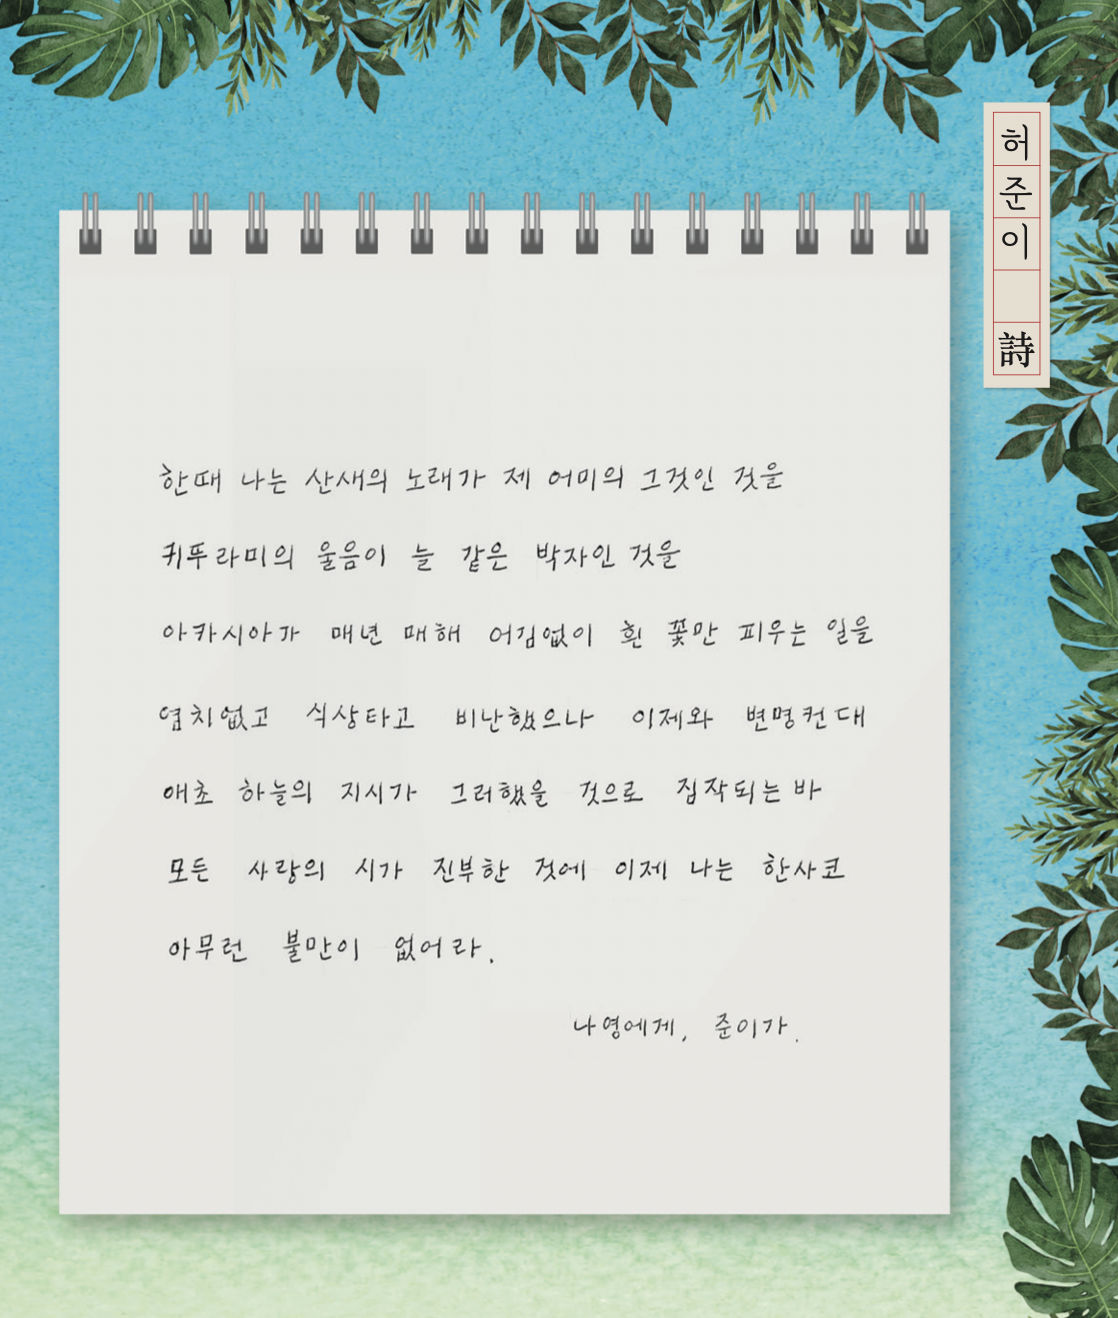 허준이 詩
한때 나는 산새의 노래가 제 어미의 그것인 것을
귀뚜라미의 울음이 늘 같은 박자인 것을
아카시아가 매년 매해 어김없이 흰 꽃만 피우는 일을
염치없고 식상타고 비난했으나 이제와 변명컨대
애초 하늘의 지시가 그러했을 것으로 짐작되는 바
모든 사랑의 시가 진부한 것에 이제 나는 한사코
아무런 불만이 없어라.
나영에게, 준이가.